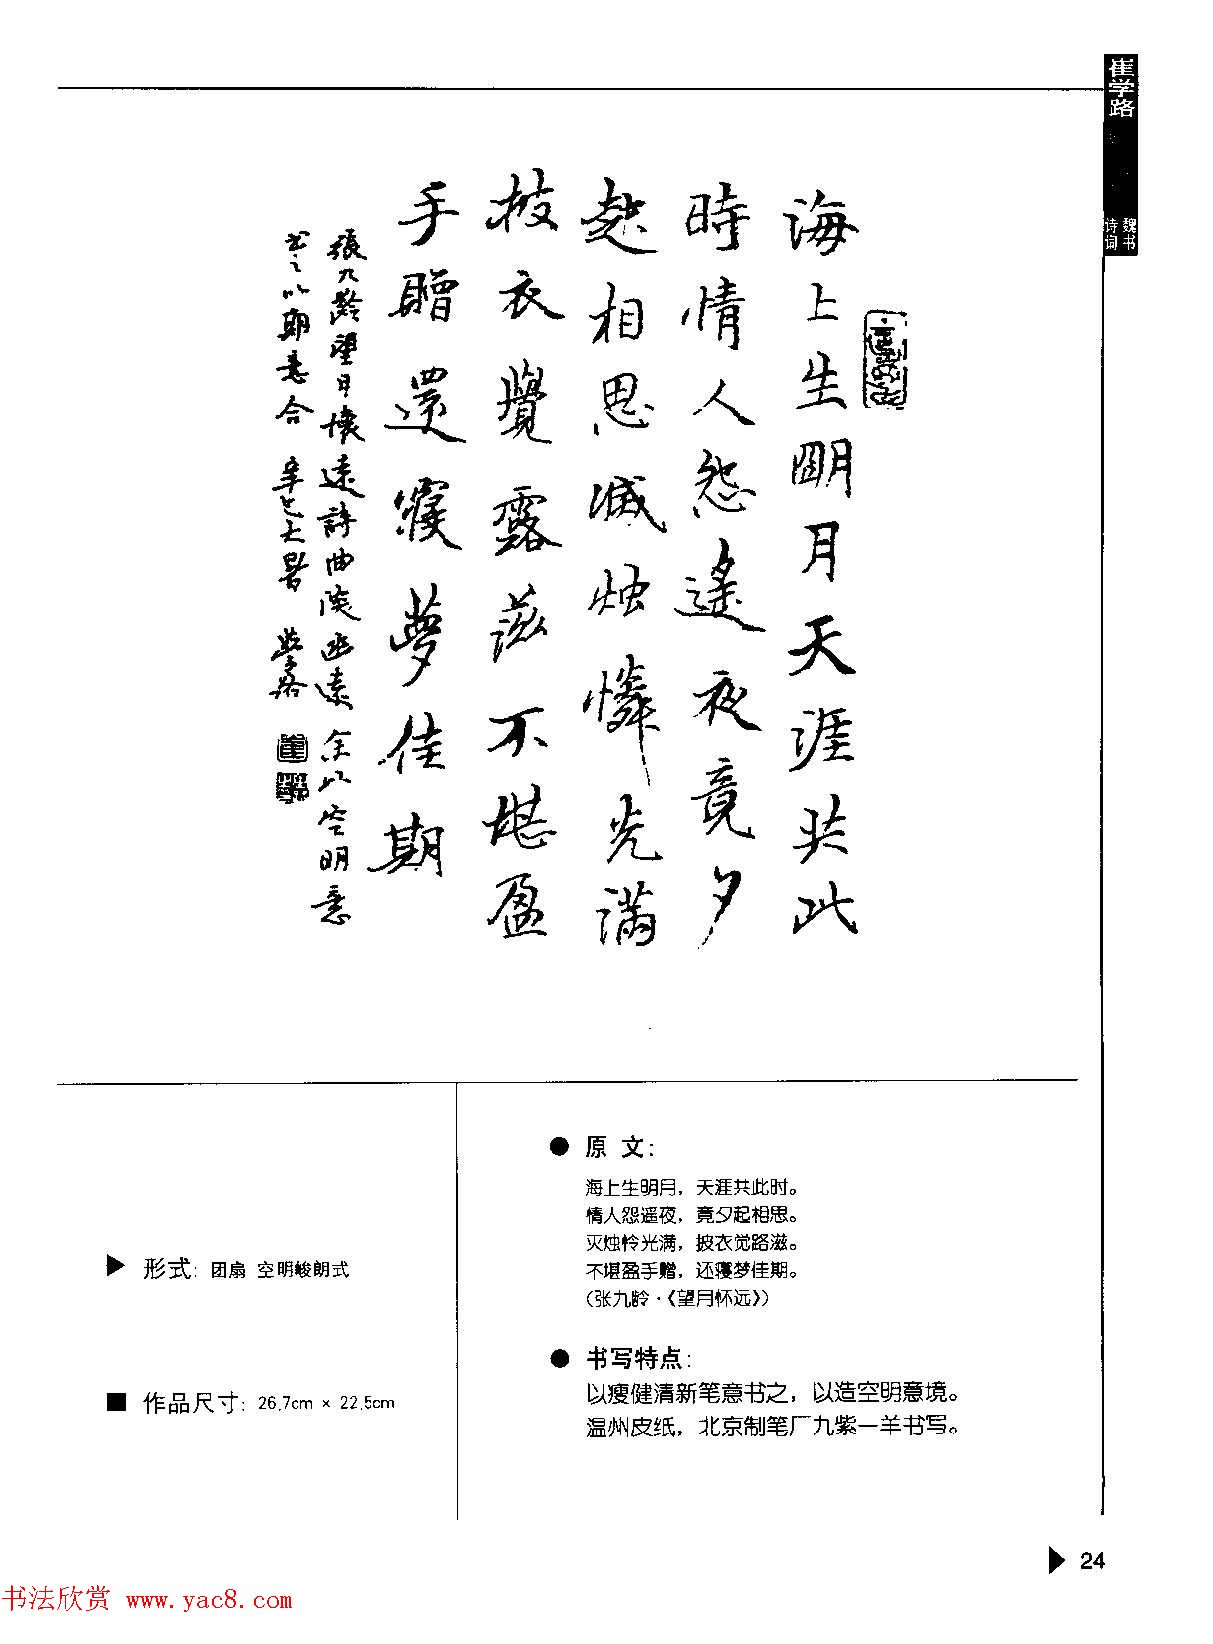 崔学路
魏书
诗词
海上生朙月天涯共此
時情人怨遙夜竟夕
起相思滅烛憐光滿
披衣覺露滋不堪盈
手贈還寢夢佳期
張九齡望月懷遠詩曲淡幽遠余以空明意
书之以期意合 辛巳大暑 學路
原文：
海上生明月，天涯共此时。
情人怨遥夜，竟夕起相思。
灭烛怜光满，披衣觉路滋。
不堪盈手赠，还寝梦佳期。
（张九龄·《望月怀远》）
形式：团扇 空明峻朗式
作品尺寸：26.7cm × 22.5cm
书写特点：
以瘦健清新笔意书之，以造空明意境。
温州皮纸，北京制笔厂九紫一羊书写。
24
书法欣赏 www.yac8.com